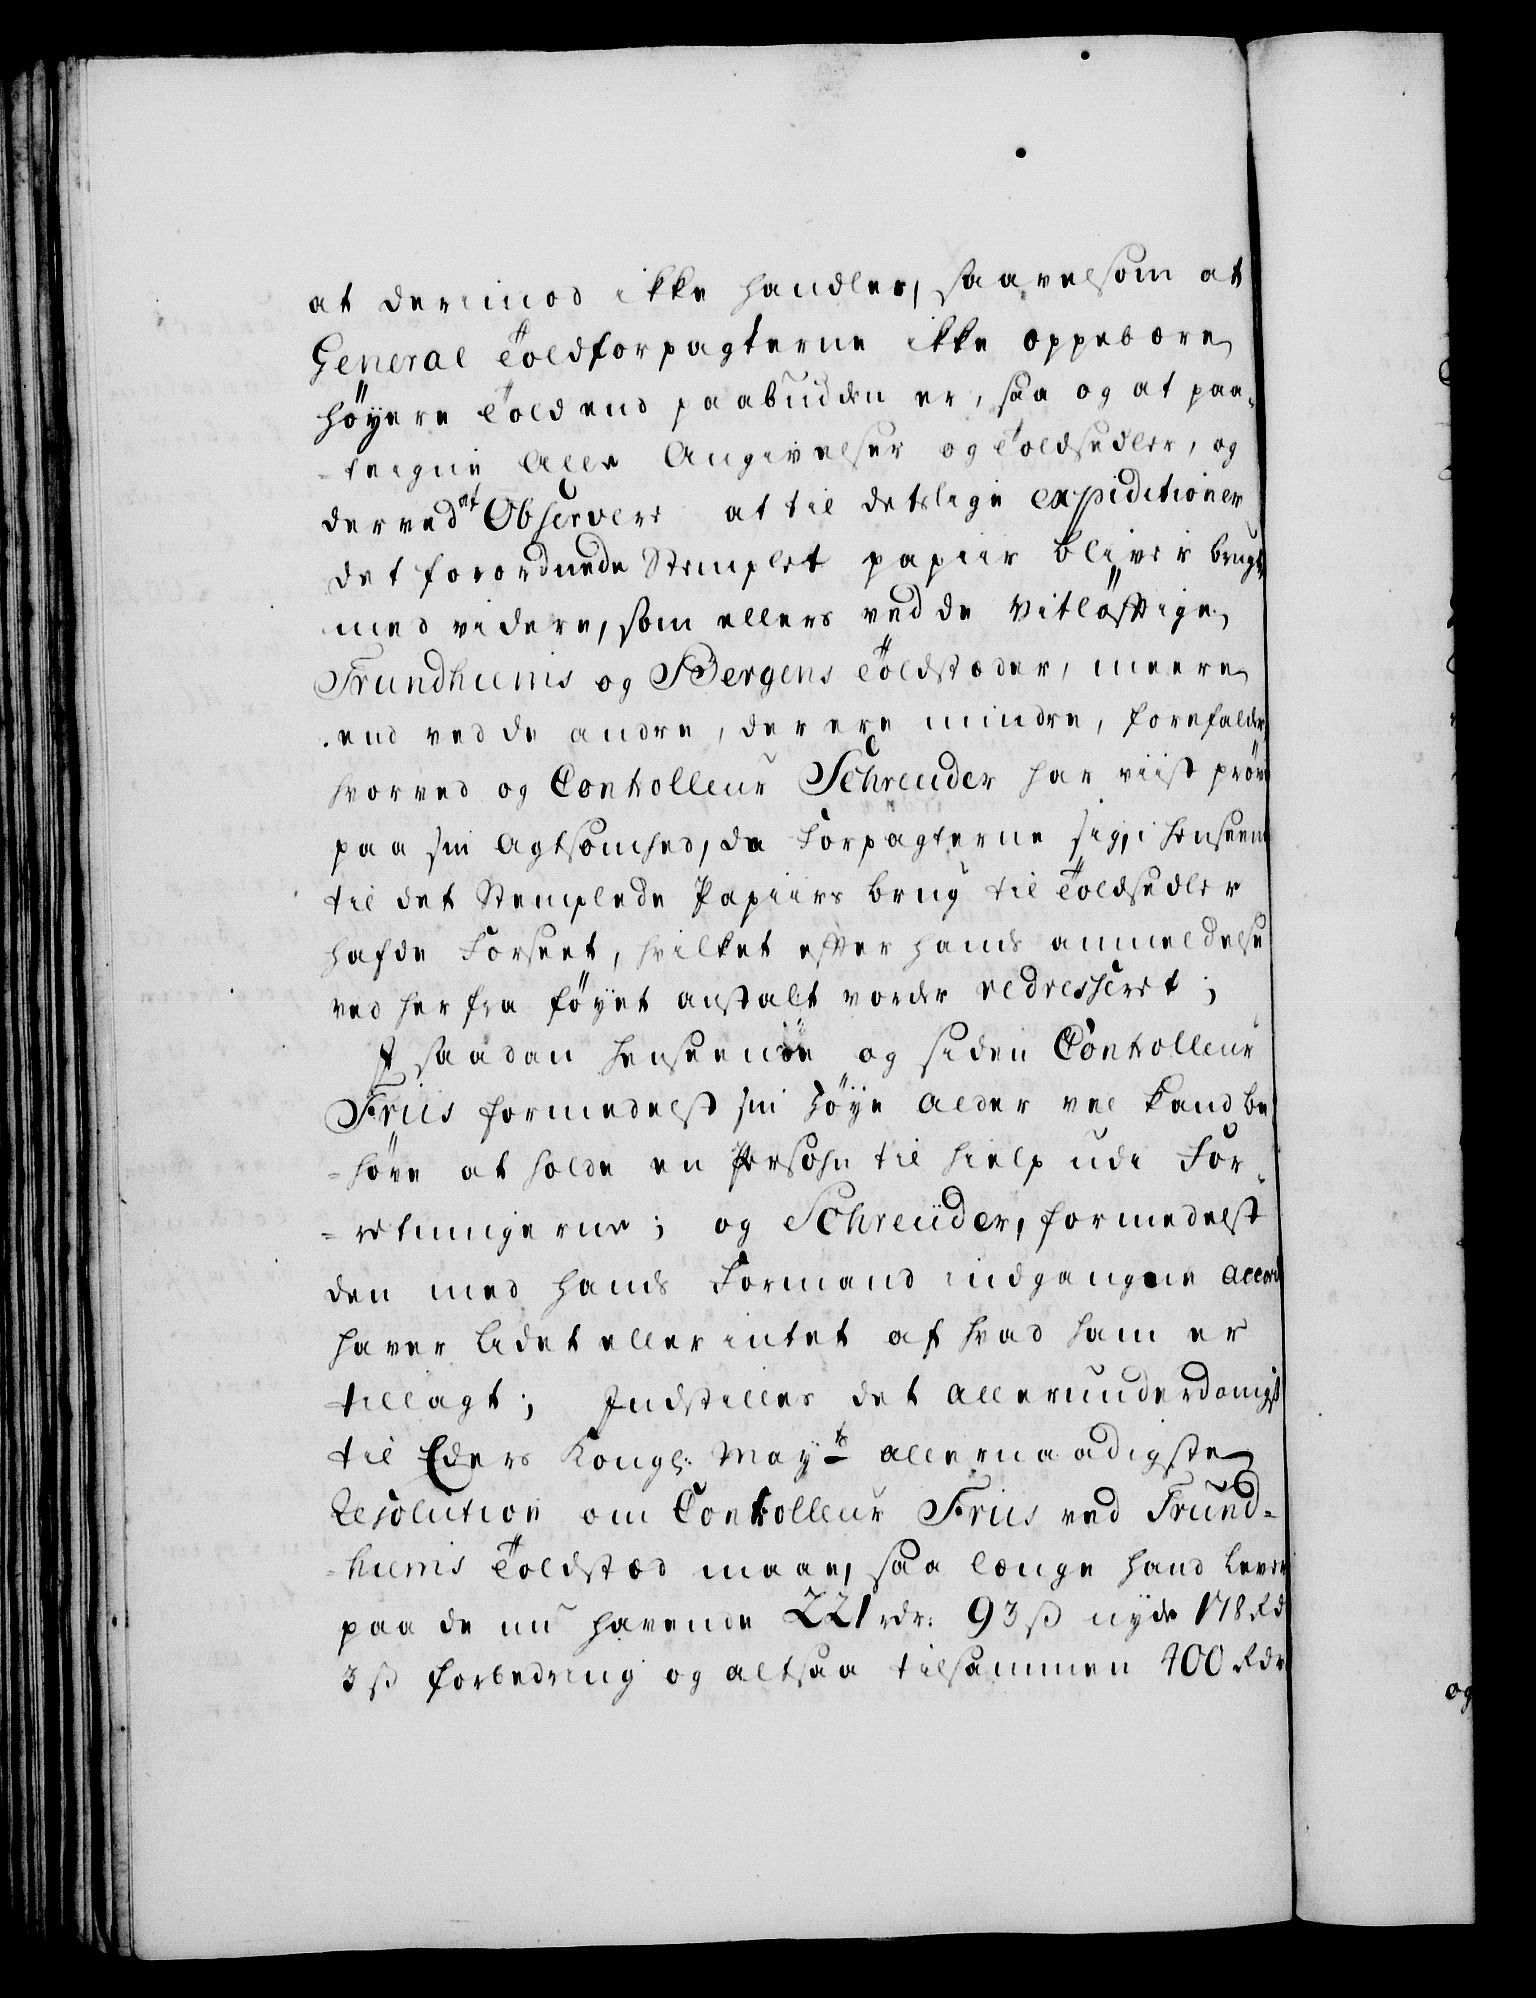 at derimod ikke handles, saavelsom at
General Toldforpagterne ikke oppebære
höyere Told end paabudden er, saa og at paa-
-teigne Alle Angivelser og Toldsedler, og
derved at Observere at til detslige expeditioner
det forordnede Stemplet papiir bliver brugt
med videre, som ellers ved de vitlöfftige
Trundhiems og Bergens Toldstæder, meere
end ved de andre, der ere mindre, forefalder
hvorved og Controlleur Schreuder har viist pröve
paa sin Agtsomhed, da Forpagterne sig, i henseende
til det Stemplede Papiirs brug til Toldsedler
hafde Forseet, hvilket efter hands anmeldelse
ved her fra föyet anstalt vorder redresseret;
I saadan henseende og siden Controlleur
Friis formedelst sin höye Alder vel kand be-
-höve at holde en Persohn til hielp udi For-
-retningerne; og Schreuder, formedelst
den med hands Formand indgangne accord
haver lidet eller intet af hvad ham er
tillagt; Indstilles det allerunderdanigst
til Eders Kongl: Mayts allernaadigste
Resolution om Controlleur Friis ved Trund-
-hiems Toldstæd maae, saa længe hand lever
paa de nu havende 221 rdr: 93 ß nyde 178 Rd
3 ß forbedring og altsaa tilsammen 400 Rdr
og